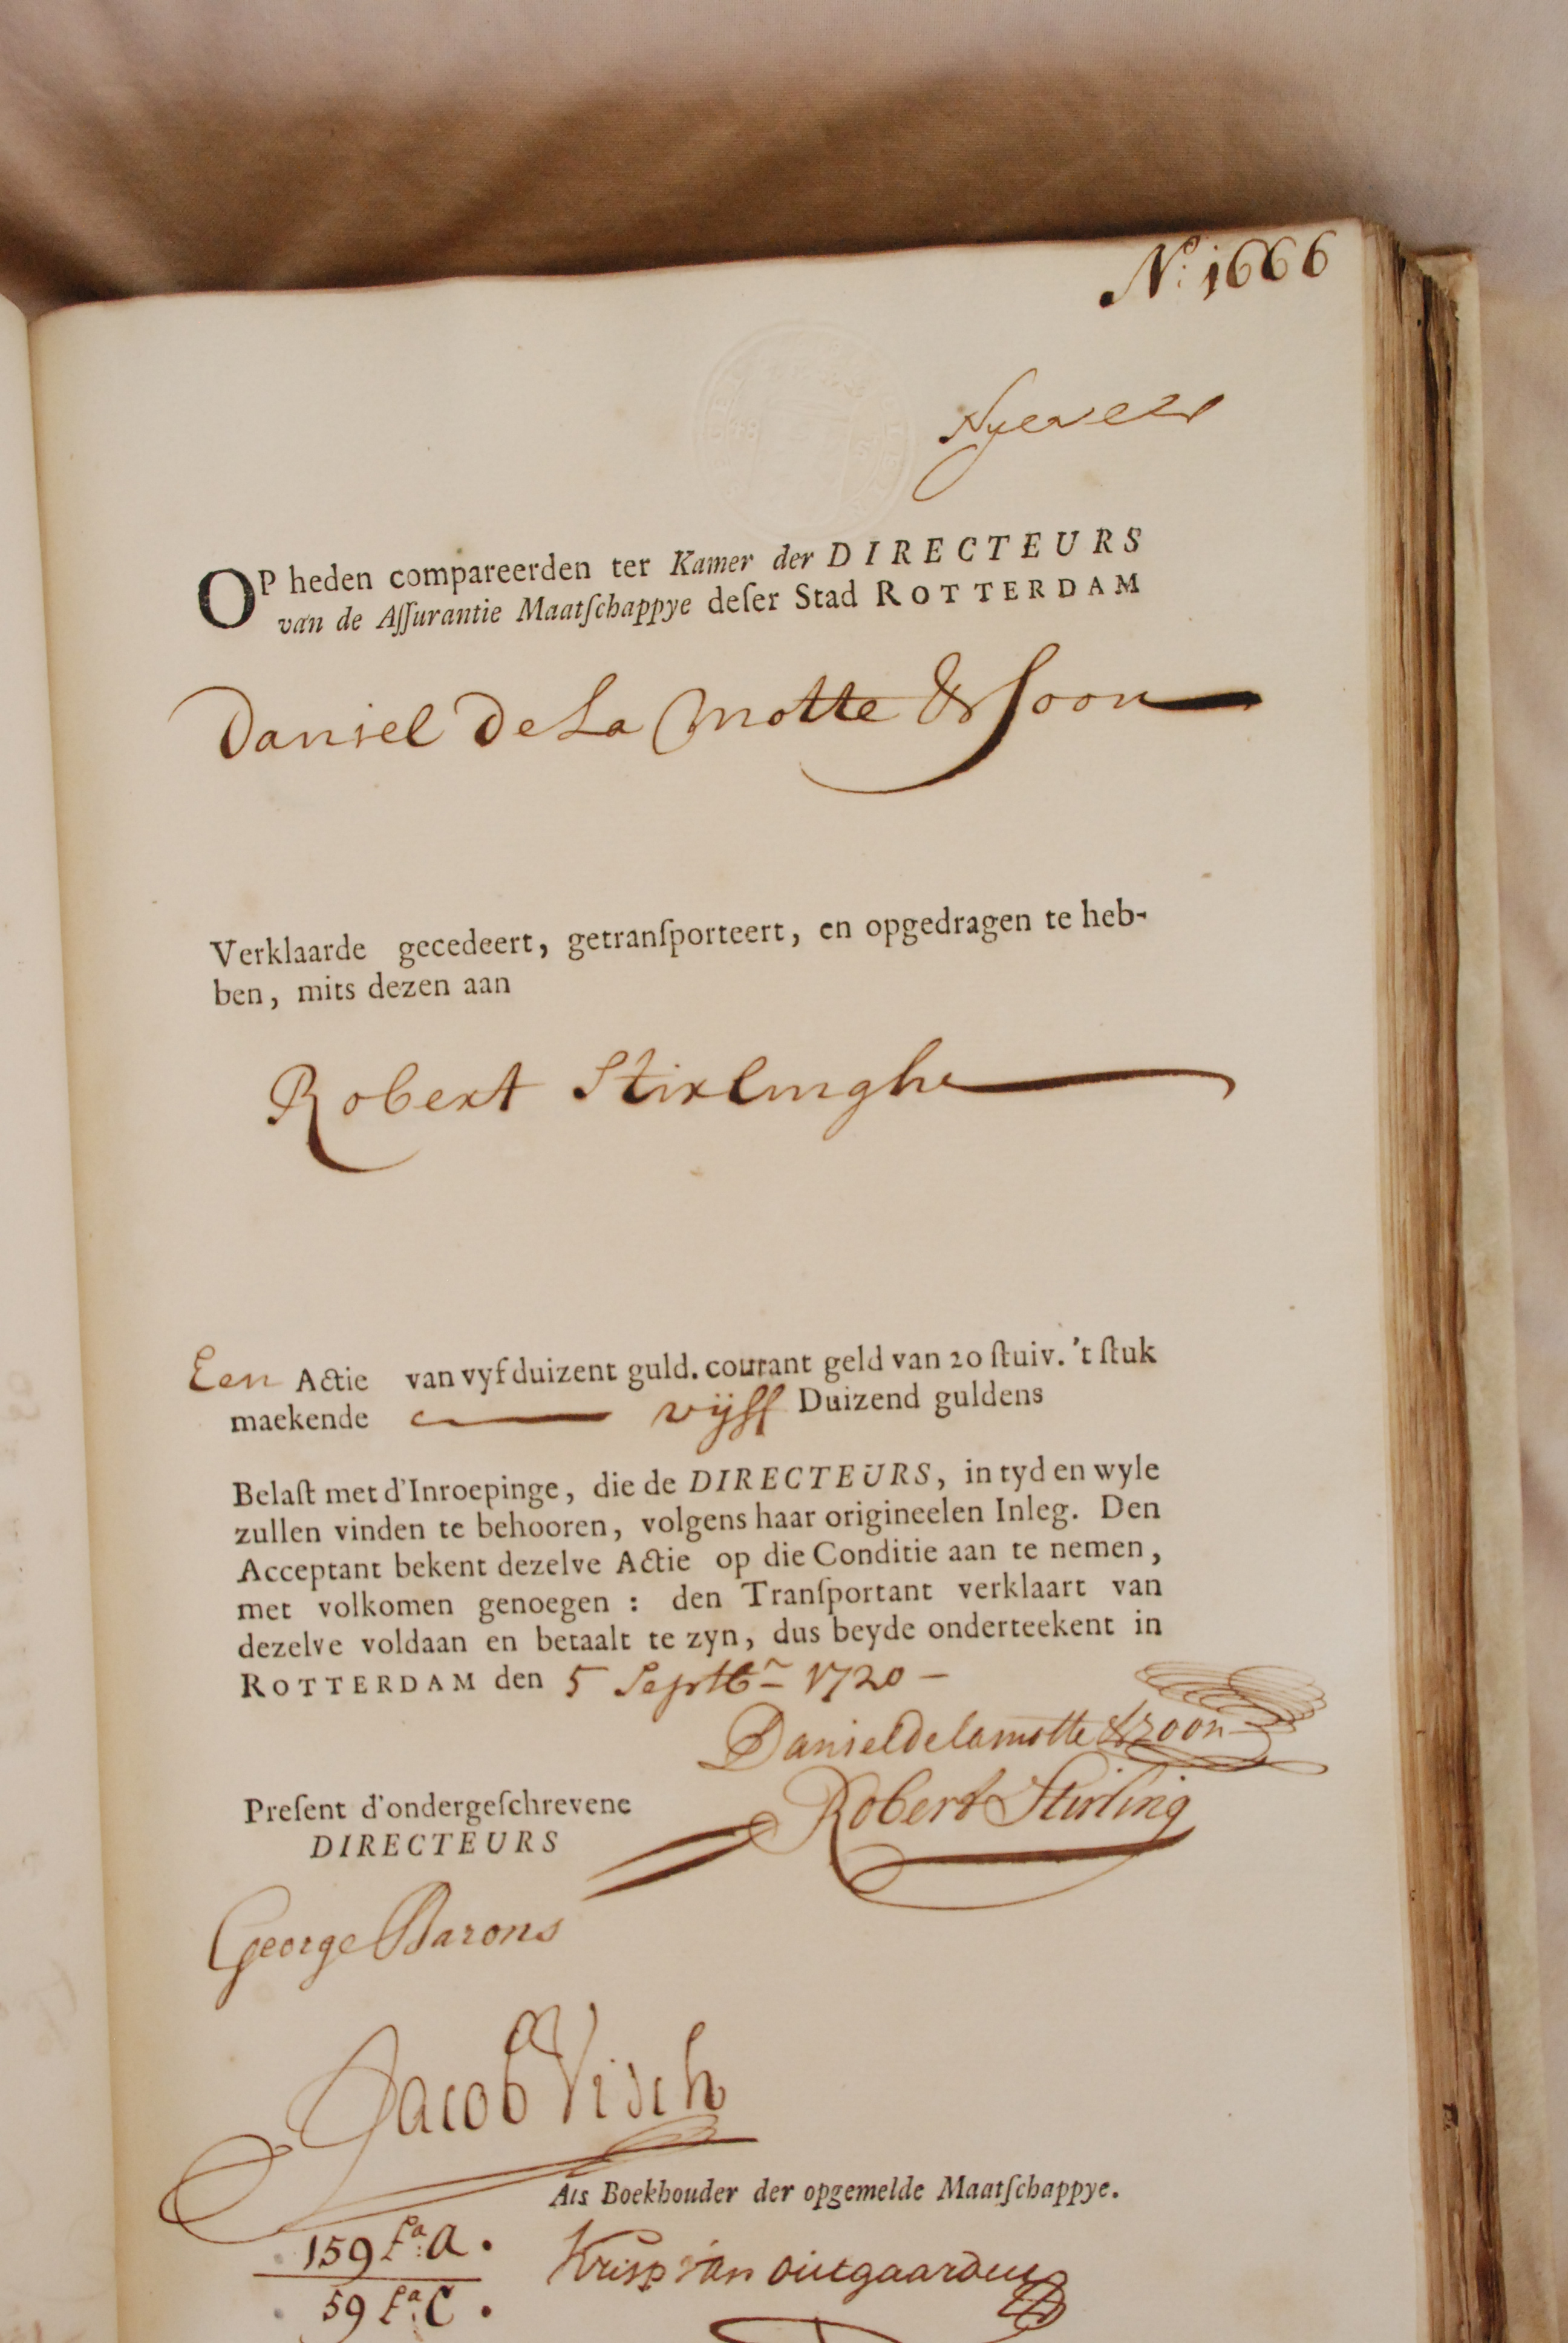 No. 1666
OP heden compareerden ter Kamer der DIRECTEURS
van de Aſſurantie Maatſchappye deſer Stad ROTTERDAM
Daniel De La Motte & Soon
Verklaarde gecedeert, getranſporteert, en opgedragen te heb-
ben, mits dezen aan
Robert Stirlinghe
Een Actie van vyf duizent guld. courant geld van 20 ſtuiv. 't ſtuk
maekende vijff Duizend guldens
Belaſt met d'Inroepinge, die de DIRECTEURS, in tyd en wyle
zullen vinden te behooren, volgens haar origineelen Inleg. Den
Acceptant bekent dezelve Actie op die Conditie aan te nemen,
met volkomen genoegen : den Tranſportant verklaart van
dezelve voldaan en betaalt te zyn, dus beyde onderteekent in
ROTTERDAM den 5 Septbr 1720 –
Daniel de lamotte & zoon
Robert Stirling
Preſent d'ondergeſchrevene
DIRECTEURS
George Barons
Jacob Visch
Als Boekhouder der opgemelde Maatſchappye.
159 fa: A.
Krisp van outgaarden
59 fa: C.